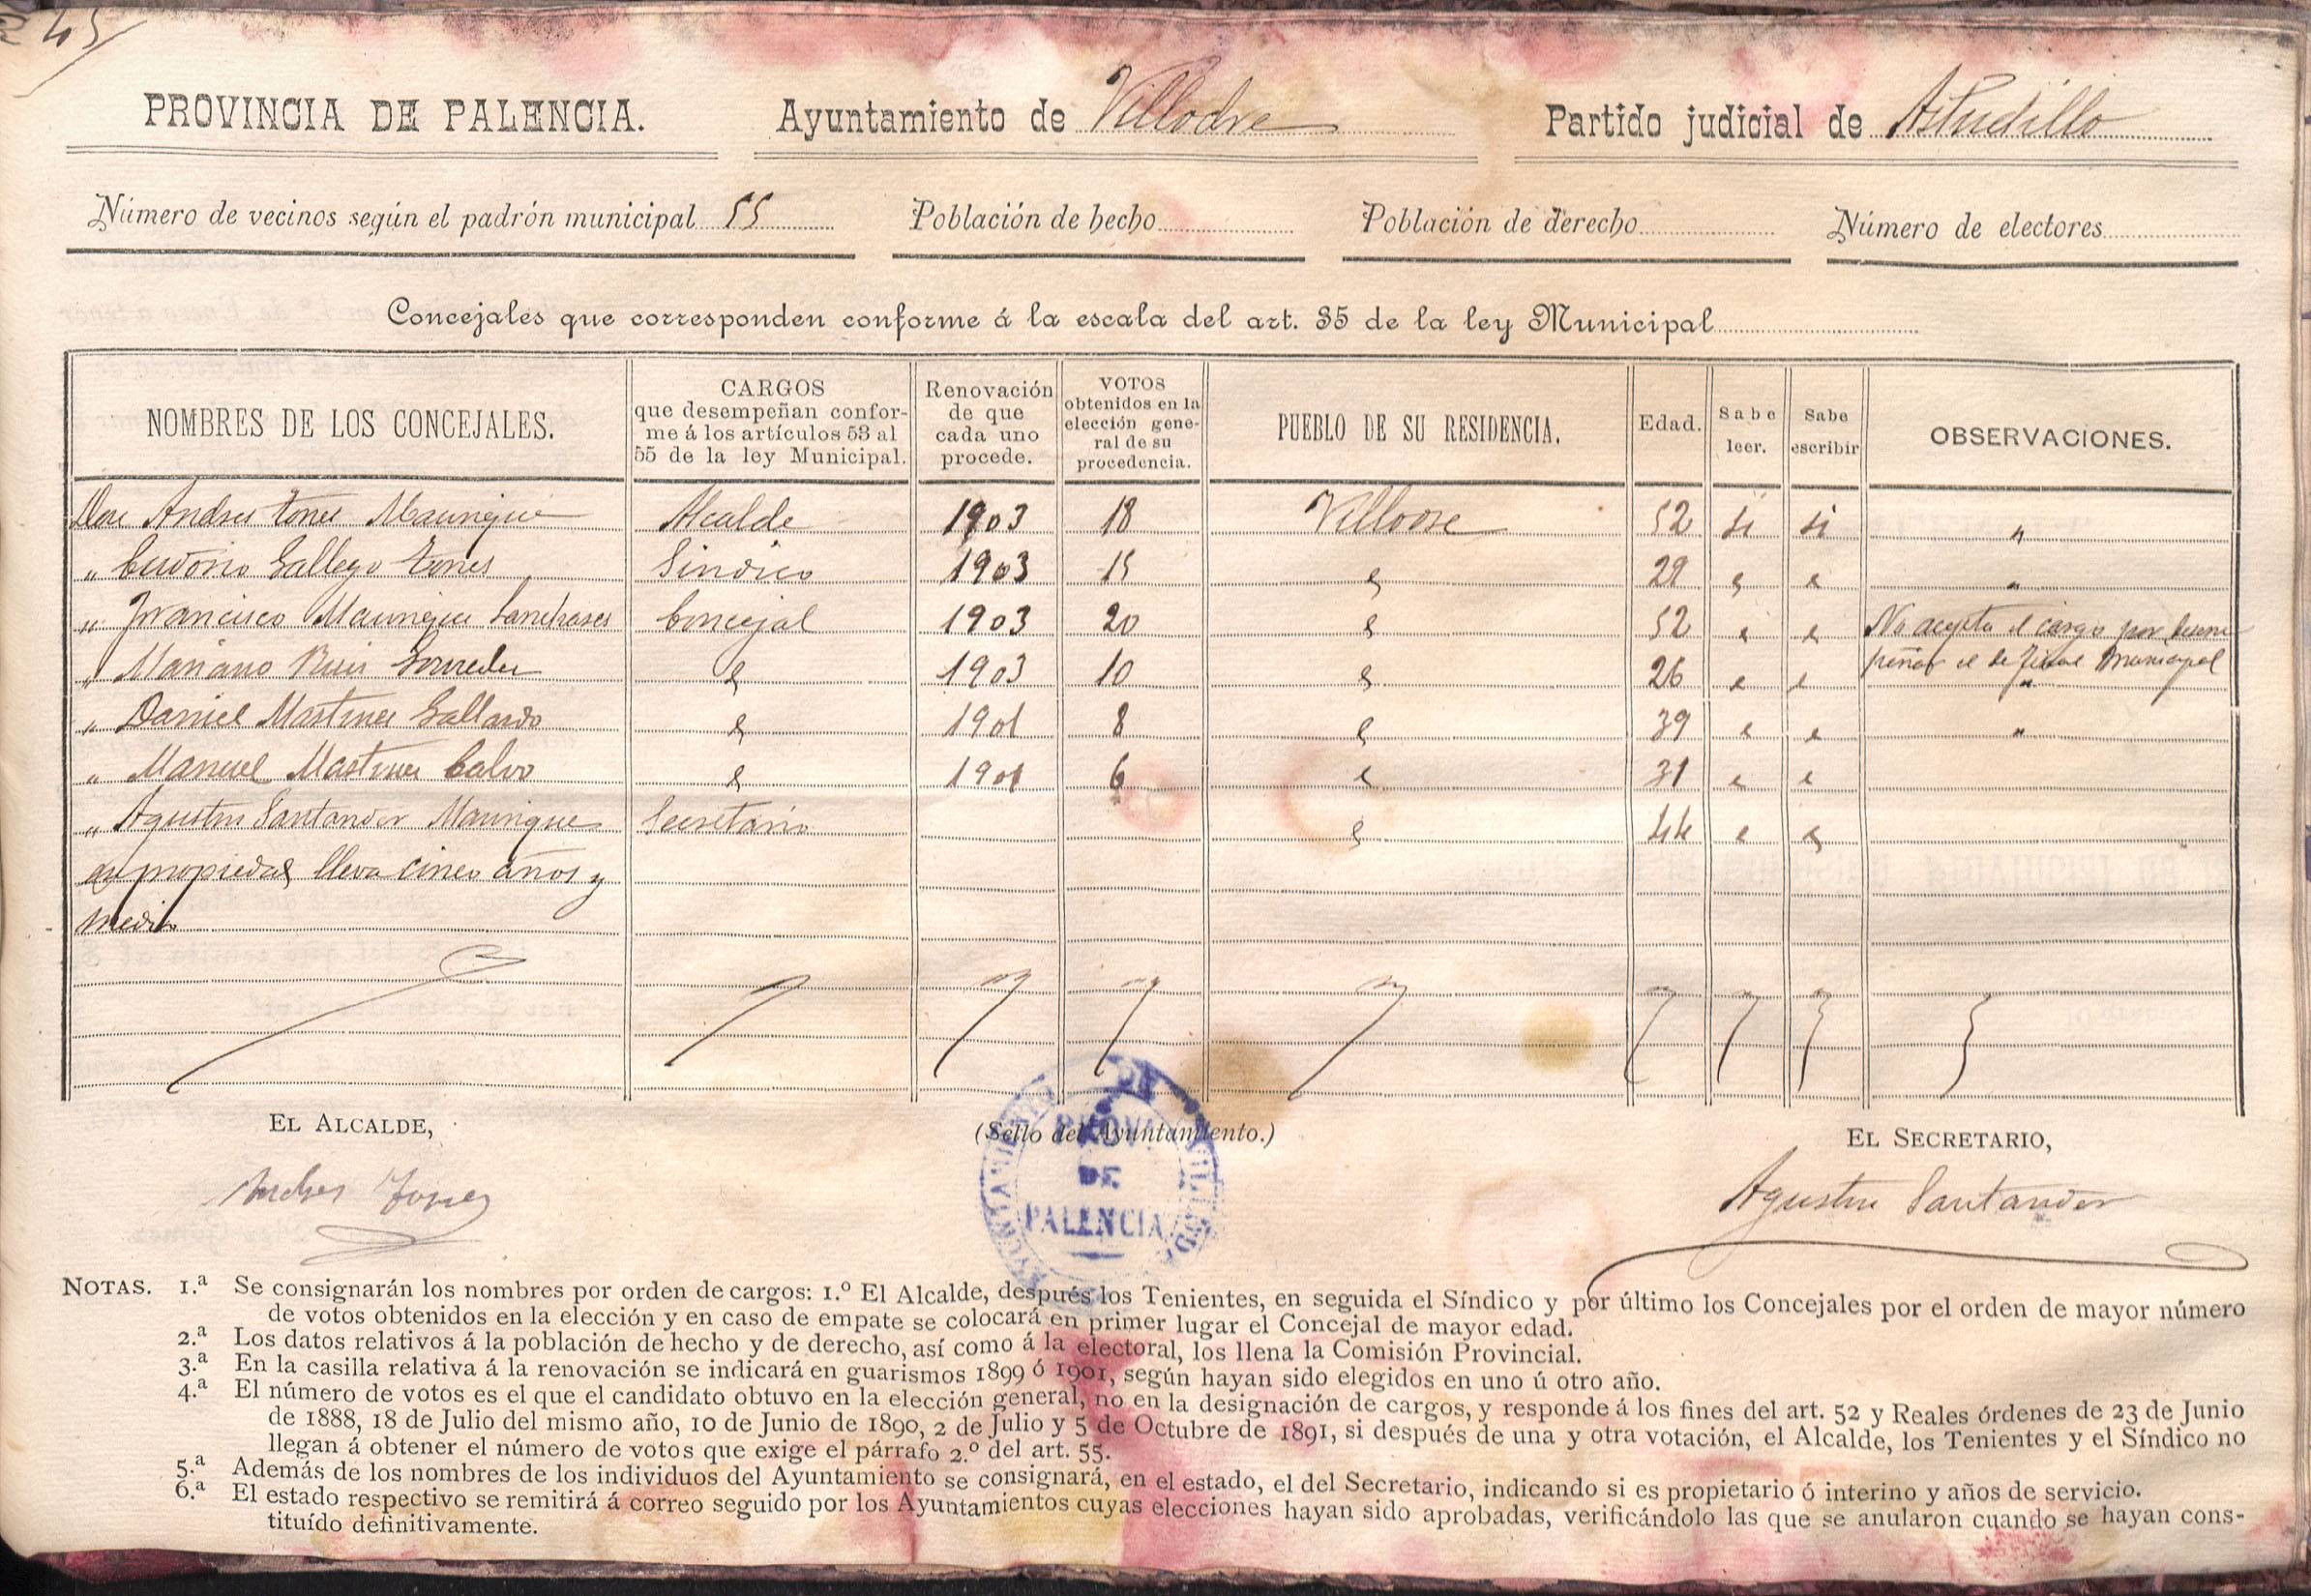 45
PROVINCIA DE PALENCIA. Ayuntamiento de Villodre Partido judicial de Astudillo
Número de vecinos según el padrón municipal 55 Población de hecho Población de derecho Número de electores
Concejales que corresponden conforme á la escala del art. 35 de la ley Municipal
NOMBRES DE LOS CONCEJALES. CARGOS que desempeñan confor- me á los artículos 53 al 55 de la ley Municipal. Renovación de que cada uno procede. VOTOS obtenidos en la elección gene- ral de su procedencia. PUEBLO DE SU RESIDENCIA. Edad. Sabe leer. Sabe escribir OBSERVACIONES.
Don Andres Torres Manrique Alcalde 1903 18 Villodre 52 si si "
" Gallego Torres Sindico 1903 15 " 29 " " "
" Francisco Manrique Concejal 1903 20 " 52 " " No acepta el cargo por desem
peñar el de Fiscal Municipal
" Mariano Ruiz " 1903 10 " 26 " " "
" Daniel Martinez Gallardo " 1901 8 " 39 " " "
" Manuel Martinez Calvo " 1901 6 " 31 " "
" Agustin Santander Manrique Secretario " 44 " "
en propiedad lleva cinco años y
medio
EL ALCALDE, (Sello del Ayuntamiento.) EL SECRETARIO,
PROVA
DE
PALENCIA
Andres Torres Agustin Santander
NOTAS. 1.ª Se consignarán los nombres por orden de cargos: 1.º El Alcalde, después los Tenientes, en seguida el Síndico y por último los Concejales por el orden de mayor número
de votos obtenidos en la elección y en caso de empate se colocará en primer lugar el Concejal de mayor edad.
2.ª Los datos relativos á la población de hecho y de derecho, así como á la electoral, los llena la Comisión Provincial.
3.ª En la casilla relativa á la renovación se indicará en guarismos 1899 ó 1901, según hayan sido elegidos en uno ú otro año.
4.ª El número de votos es el que el candidato obtuvo en la elección general, no en la designación de cargos, y responde á los fines del art. 52 y Reales órdenes de 23 de Junio
de 1888, 18 de Julio del mismo año, 10 de Junio de 1890, 2 de Julio y 5 de Octubre de 1891, si después de una y otra votación, el Alcalde, los Tenientes y el Síndico no
llegan á obtener el número de votos que exige el párrafo 2.º del art. 55.
5.ª Además de los nombres de los individuos del Ayuntamiento se consignará, en el estado, el del Secretario, indicando si es propietario ó interino y años de servicio.
6.ª El estado respectivo se remitirá á correo seguido por los Ayuntamientos cuyas elecciones hayan sido aprobadas, verificándolo las que se anularon cuando se hayan cons-
tituído definitivamente.